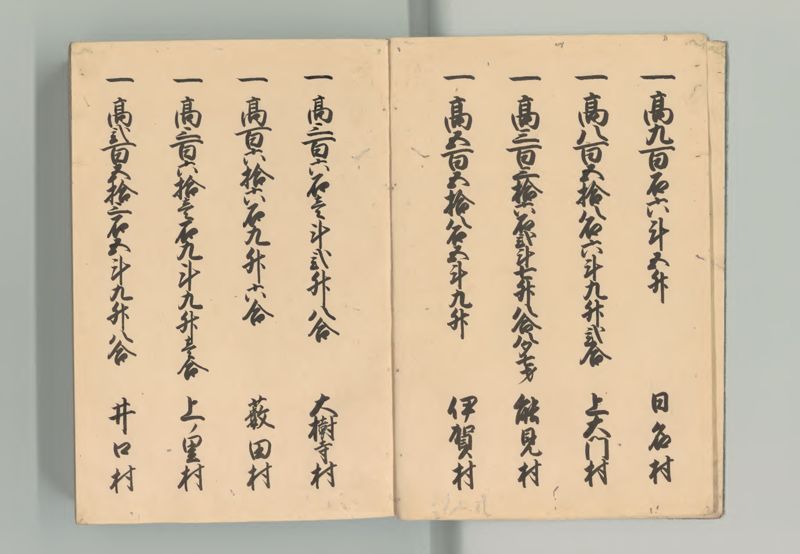 一 高九百石六斗五升 日名村
一 高八百五拾八石六斗九升弐合 上大門村
一 高三百三拾六石弐斗七升八合八夕七才 能見村
一 高五百五拾八石五斗九升 伊賀村
一 高三百六石壱斗弐升八合 大樹寺村
一 高百六拾六石九升六合 薮田村
一 高三百六拾壱石九斗九升壱合 上ノ里村
一 高弐百五拾三石五斗九升八合 井口村